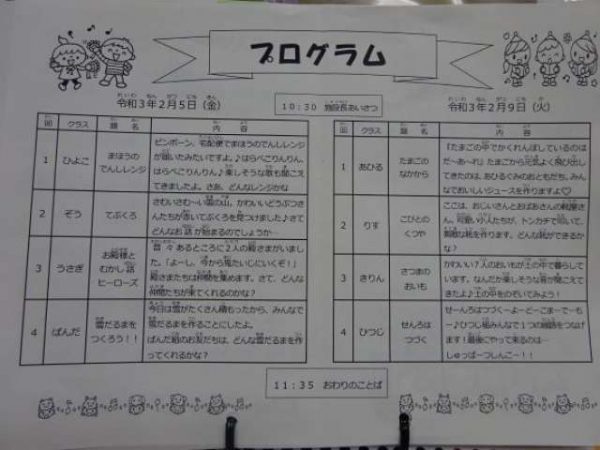 プログラム
令和3年2月5日(金)
10:30 施設長あいさつ
令和3年2月9日(火)
回 クラス 題名 内容
1 ひよこ まほうのでんしレンジ
ピンポーン、宅配便でまほうのでんしレンジ
が届いたみたいですよ。♪はらぺこりんりん、
はらぺこりんりん♪楽しそうな歌も聞こえ
てきましたよ。さあ、どんなレンジかな
2 ぞう てぶくろ
さむいさむ~い雪の山。かわいいどうぶつさ
んたちが赤いてぶくろを見つけました♪さて
どんなお話が始まるのでしょうか…
3 うさぎ お殿様とむかし話ヒーローズ
昔々あるところに2人の殿さまがいまし
た。「よーし、今から鬼たいじにいくぞ!」
殿さまたちは仲間を集めます。さて、どんな
仲間たちが来てくれるのかな?
4 ぱんだ 雪だるまをつくろう!!
今日は雪がたくさん積もったから、みんなで
雪だるまを作ることにしたよ。
ぱんだ組のお友だちは、どんな雪だるまを作
ってくれるかな?
回 クラス 題名 内容
1 あひる たまごのなかから
「たまごの中でかくれんぼしているのは
だ~あ~れ」たまごから元気よく飛び出し
てきたのは、あひるぐみのおともだち。みん
なでおいしいジュースを作りますよ♡
2 りす こびとのくつや
ここは、おじいさんとおばあさんの靴屋さ
ん。可愛い小人たちが、トンカチで叩いて、
素敵な靴を作ります。どんな靴ができるか
な?
3 きりん さつまのおいも
かわいい7人のおいもが土の中で暮らしてい
ます。なんだか楽しそうな音が聞こえて
きたよ♪土の中をのぞいてみよう!
4 ひつじ せんろはつづく
せーんろはつづくーよーどーこまーでーも
ー♪ひつじ組みんなで1つの線路をつなげ
ます!最後にやって来るのは…
しゅっぱーつしんこー!!
11:35 おわりのことば